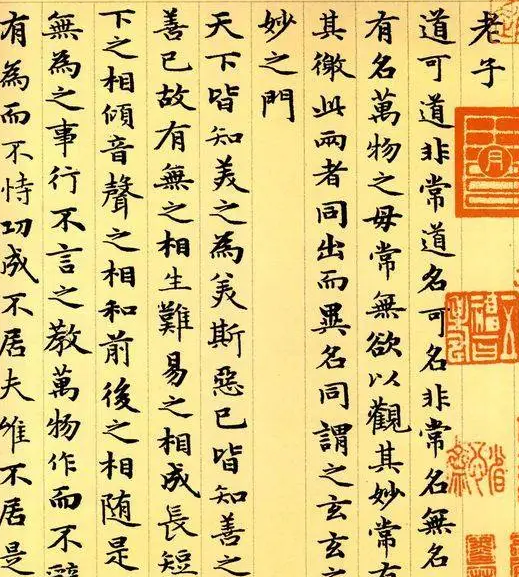 老子
道可道非常道名可名非常名無名
有名萬物之母常無欲以觀其妙常有
其徼此兩者同出而異名同謂之玄玄之
妙之門
天下皆知美之為美斯惡已皆知善之
善已故有無之相生難易之相成長短
下之相傾音聲之相和前後之相随是
無為之事行不言之教萬物作而不
有為而不恃功成不居夫唯不居是